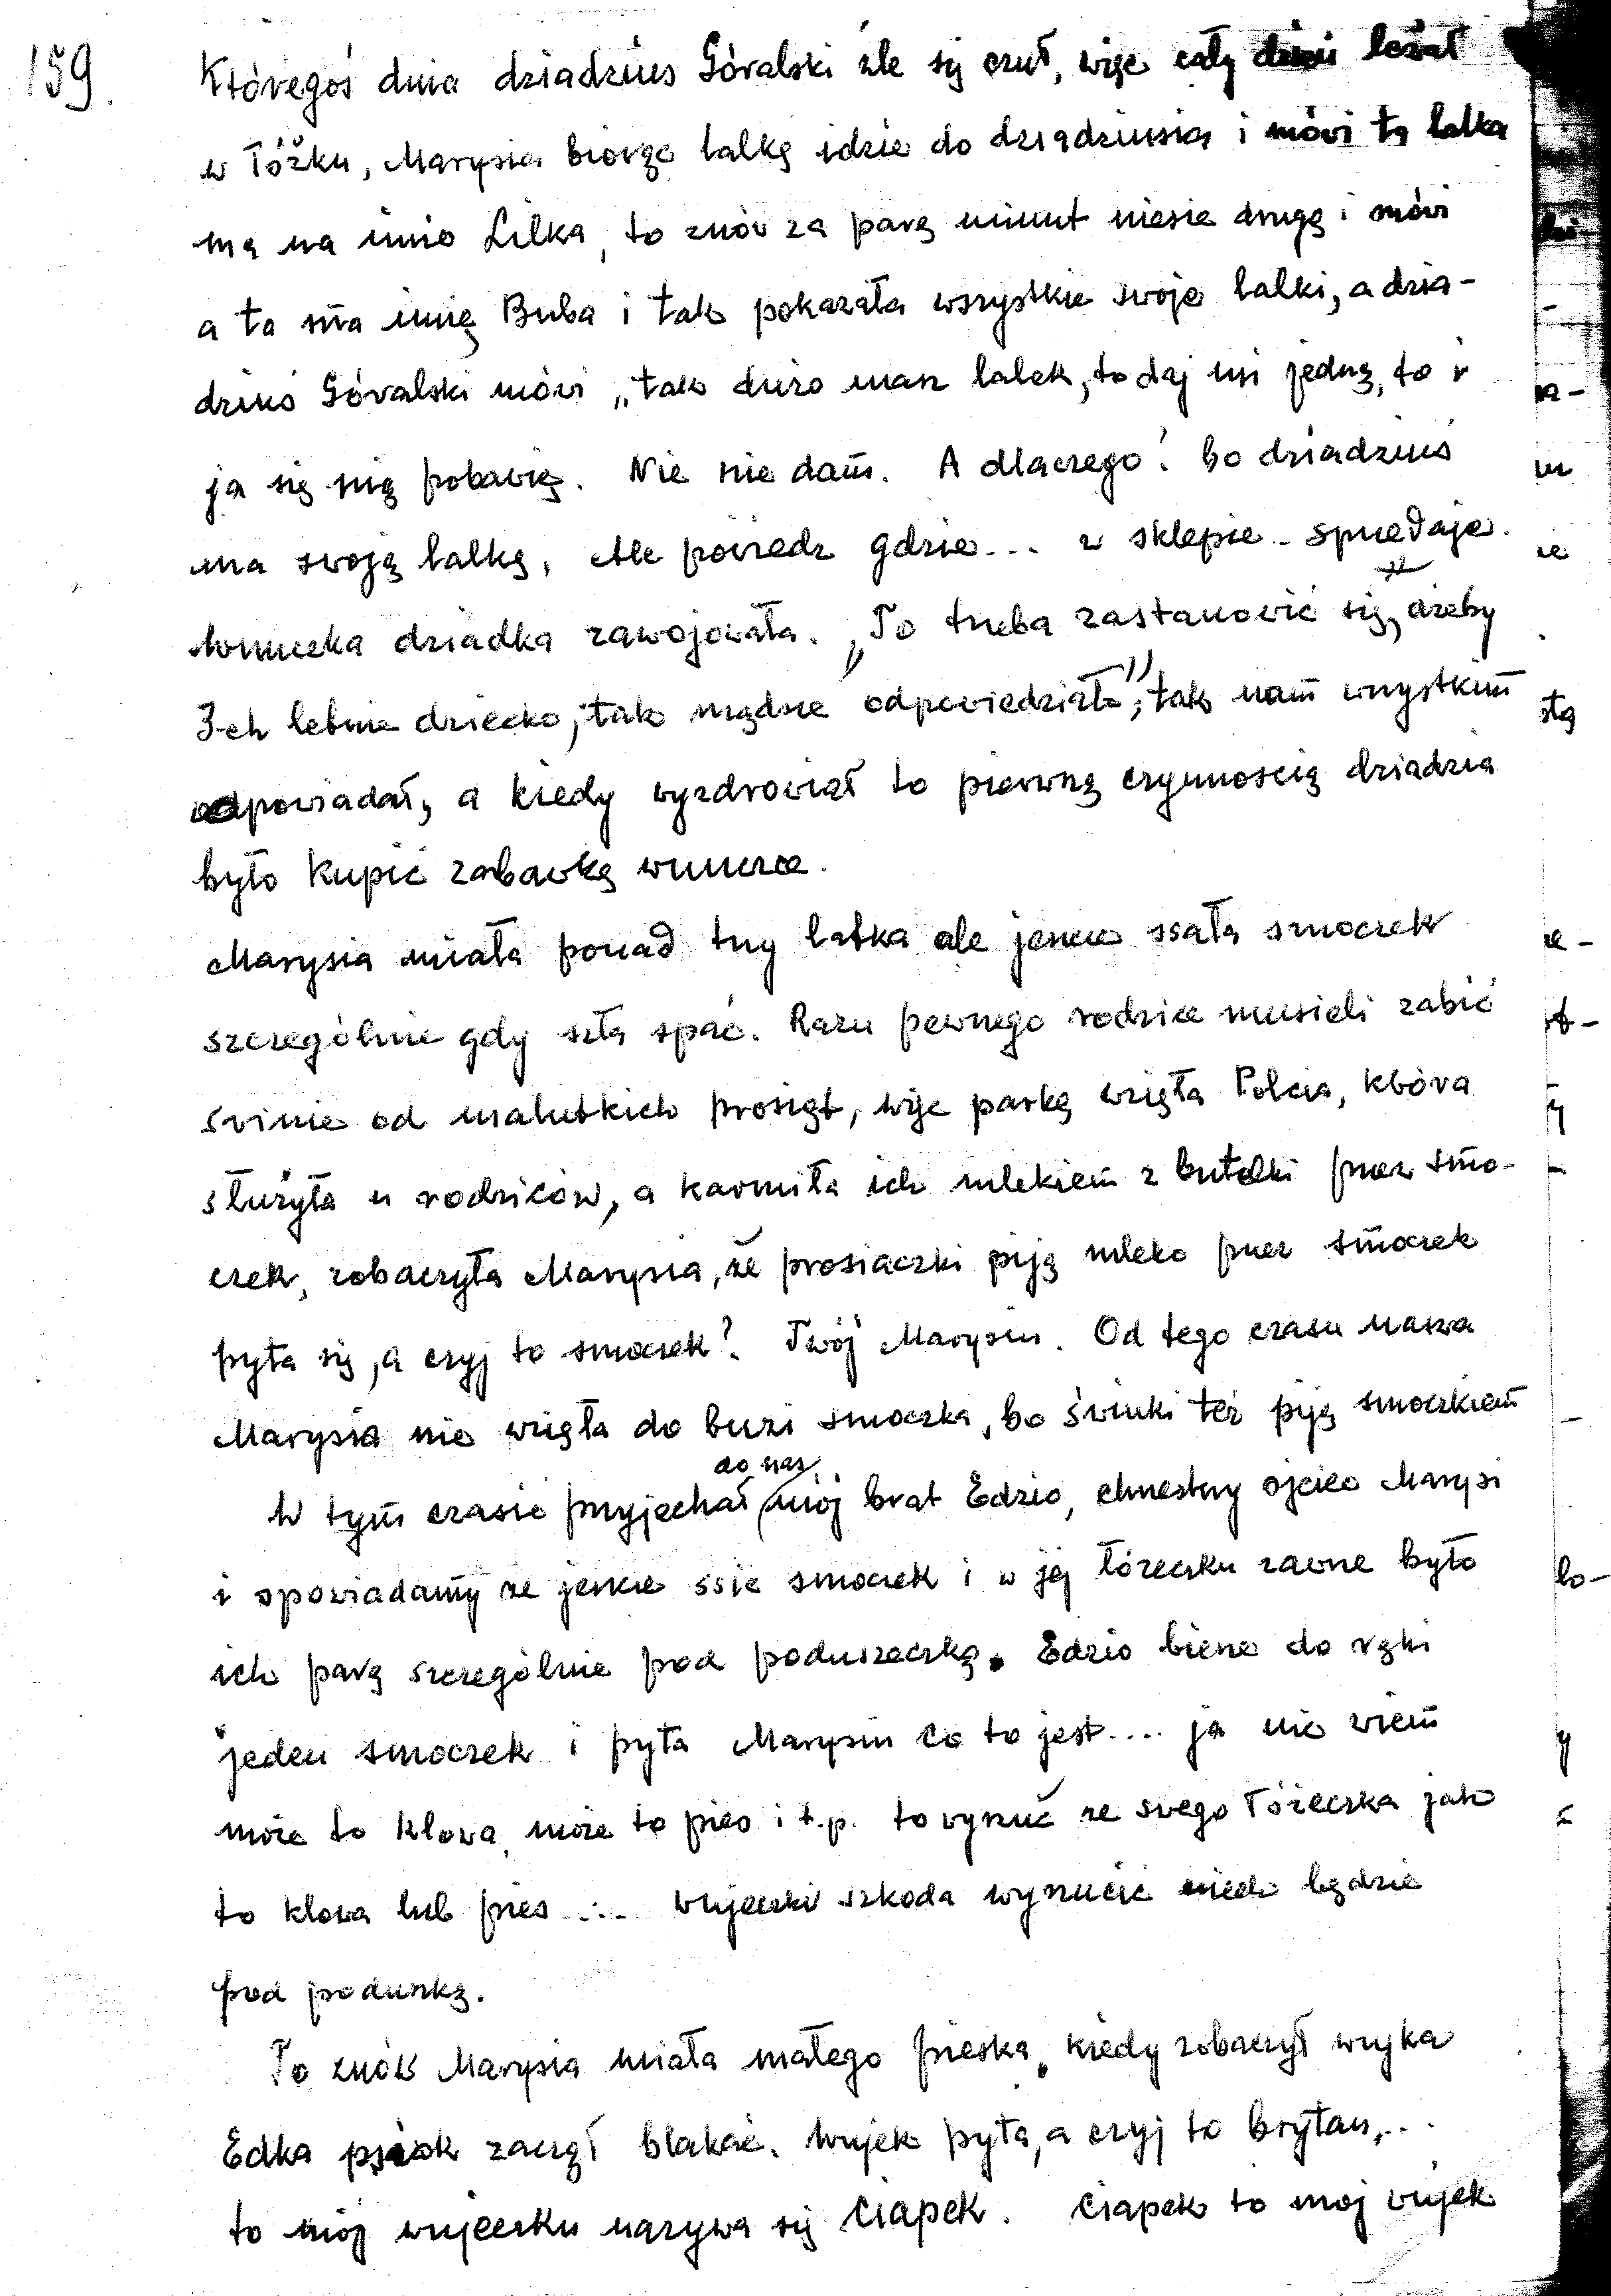 159.
Któregoś dnia dziadziuś Góralski źle się czuł, więc cały dzień leżał
w łóżku, Marysia biorąc lalkę idzie do dziadziusia i mówi ta lalka
ma na imie Lilka, to znów za parę minut niesie drugą i mówi
a ta ma imię Buba i tak pokazała wszystkie swoje lalki, a dzia-
dziuś Góralski mówi „tak dużo masz lalek, to daj mi jedną, to i
ja się nią pobawię. Nie nie dam. A dlaczego? bo dziadziuś
ma swoją lalkę. Ale powiedz gdzie... w sklepie - sprzedaje.
Wnuczka dziadka zawojowała. „To trzeba zastanowić się, ażeby
3-ch letnie dziecko, tak mądrze odpowiedziało", tak nam wszystkim
odpowiadał, a kiedy wyzdrowiał to pierwszą czynnością dziadzia
było kupić zabawkę wnuczce.
Marysia miała ponad trzy latka ale jeszcze ssała smoczek
szczególnie gdy szła spać. Razu pewnego rodzice musieli zabić
świnie od malutkich prosiąt, więc parkę wzięła Polcia, która
służyła u rodziców, a karmiła ich mlekiem z butelki przez smo-
czek, zobaczyła Marysia, że prosiaczki piją mleko przez smoczek
pyta się, a czyj to smoczek? Twój Marysiu. Od tego czasu nasza
Marysia nie wzięła do buzi smoczka, bo świnki też piją smoczkiem
do nas
W tym czasie przyjechał mój brat Edzio, chrzestny ojciec Marysi
i opowiadamy że jeszcze ssie smoczek i w jej łóżeczku zawsze było
ich parę szczególnie pod poduszeczką. Edzio bierze do ręki
jeden smoczek i pyta Marysiu co to jest.... ja nie wiem
może to klowa, może to pies i t.p. to wyrzuć ze swego łóżeczka jak
to klowa lub pies ... wujeczku szkoda wyrzucić niech będzie
pod poduszką.
To znów Marysia miała małego pieska, kiedy zobaczył wujka
Edka psiak zaczął blakać. Wujek pyta, a czyj to brytan,..
to mój wujeczku nazywa się Ciapek. Ciapek to moj wujek